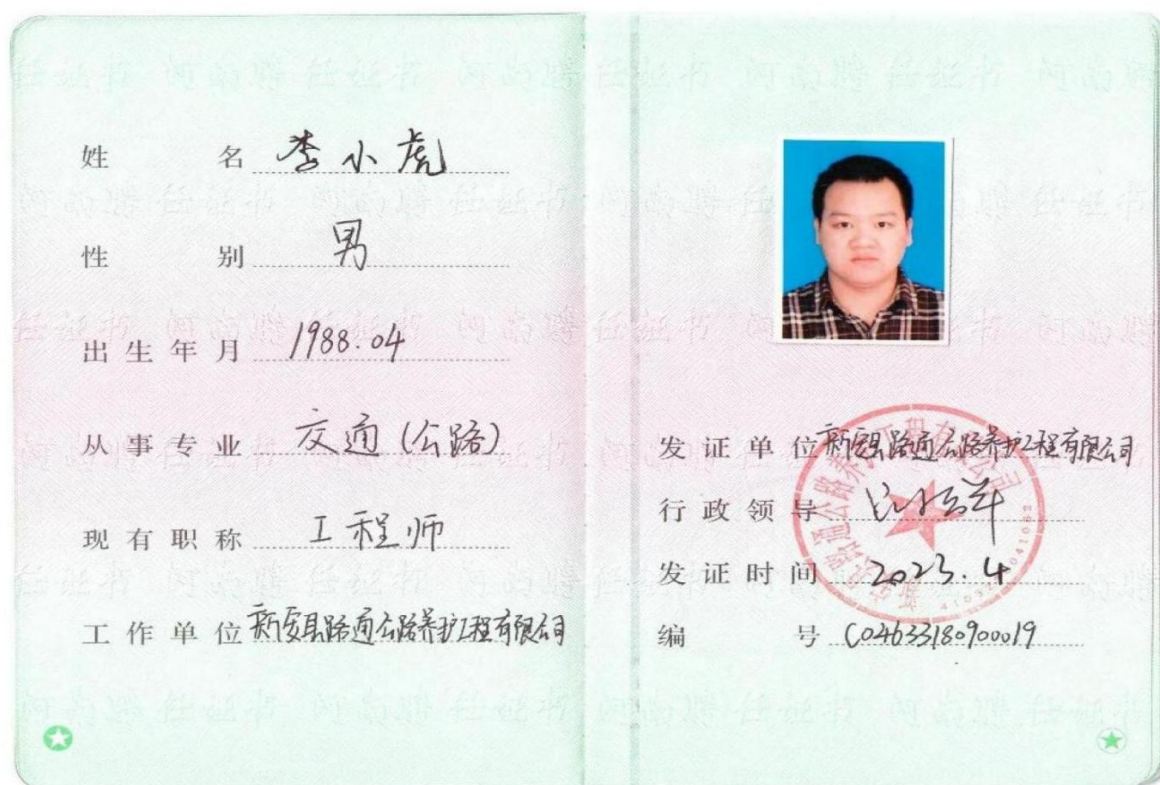 姓名 李小虎
性别 男
出生年月 1988.04
从事专业 交通(公路)
现有职称 工程师
工作单位 新安县路通公路养护工程有限公司
发证单位 新安县路通公路养护工程有限公司
行政领导
发证时间 2023.4
编号 C04633180900019